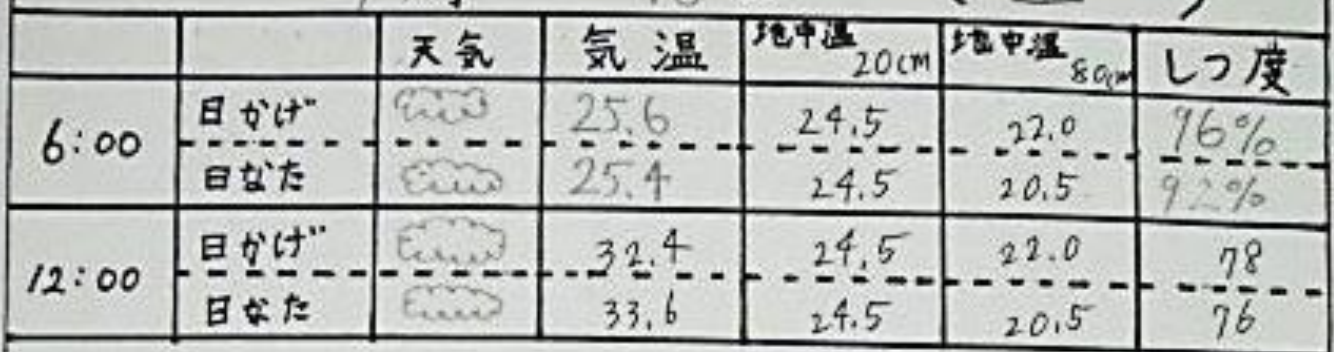 天気 気温 地中温20cm 地中温80cm しつ度
6:00 日かげ 25.6 24.5 22.0 96%
日なた 25.4 24.5 20.5 92%
12:00 日かげ 32.4 24.5 22.0 78
日なた 33.6 24.5 20.5 76